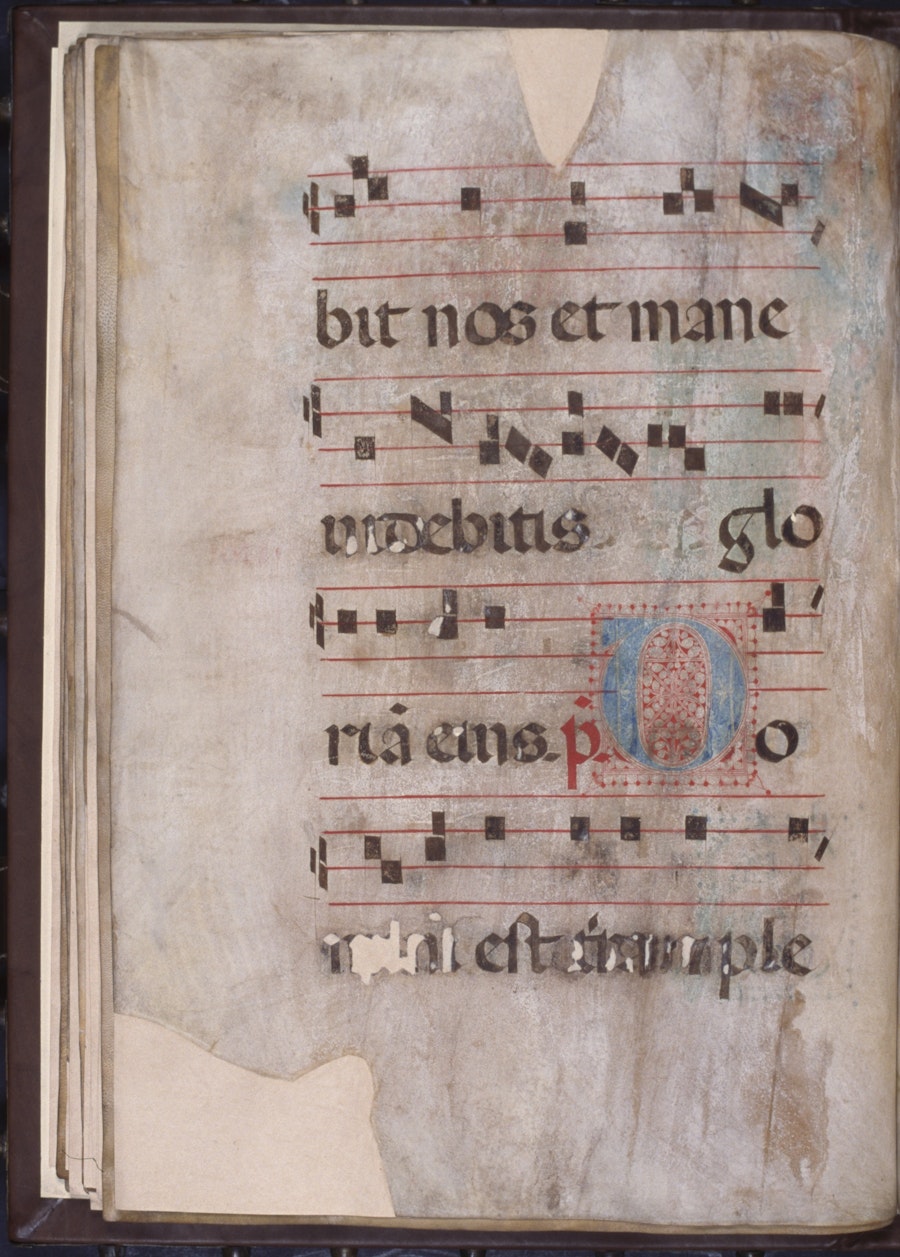 bit nos et mane
uidebitis glo
riā eius. p̄. Do
mini est ple